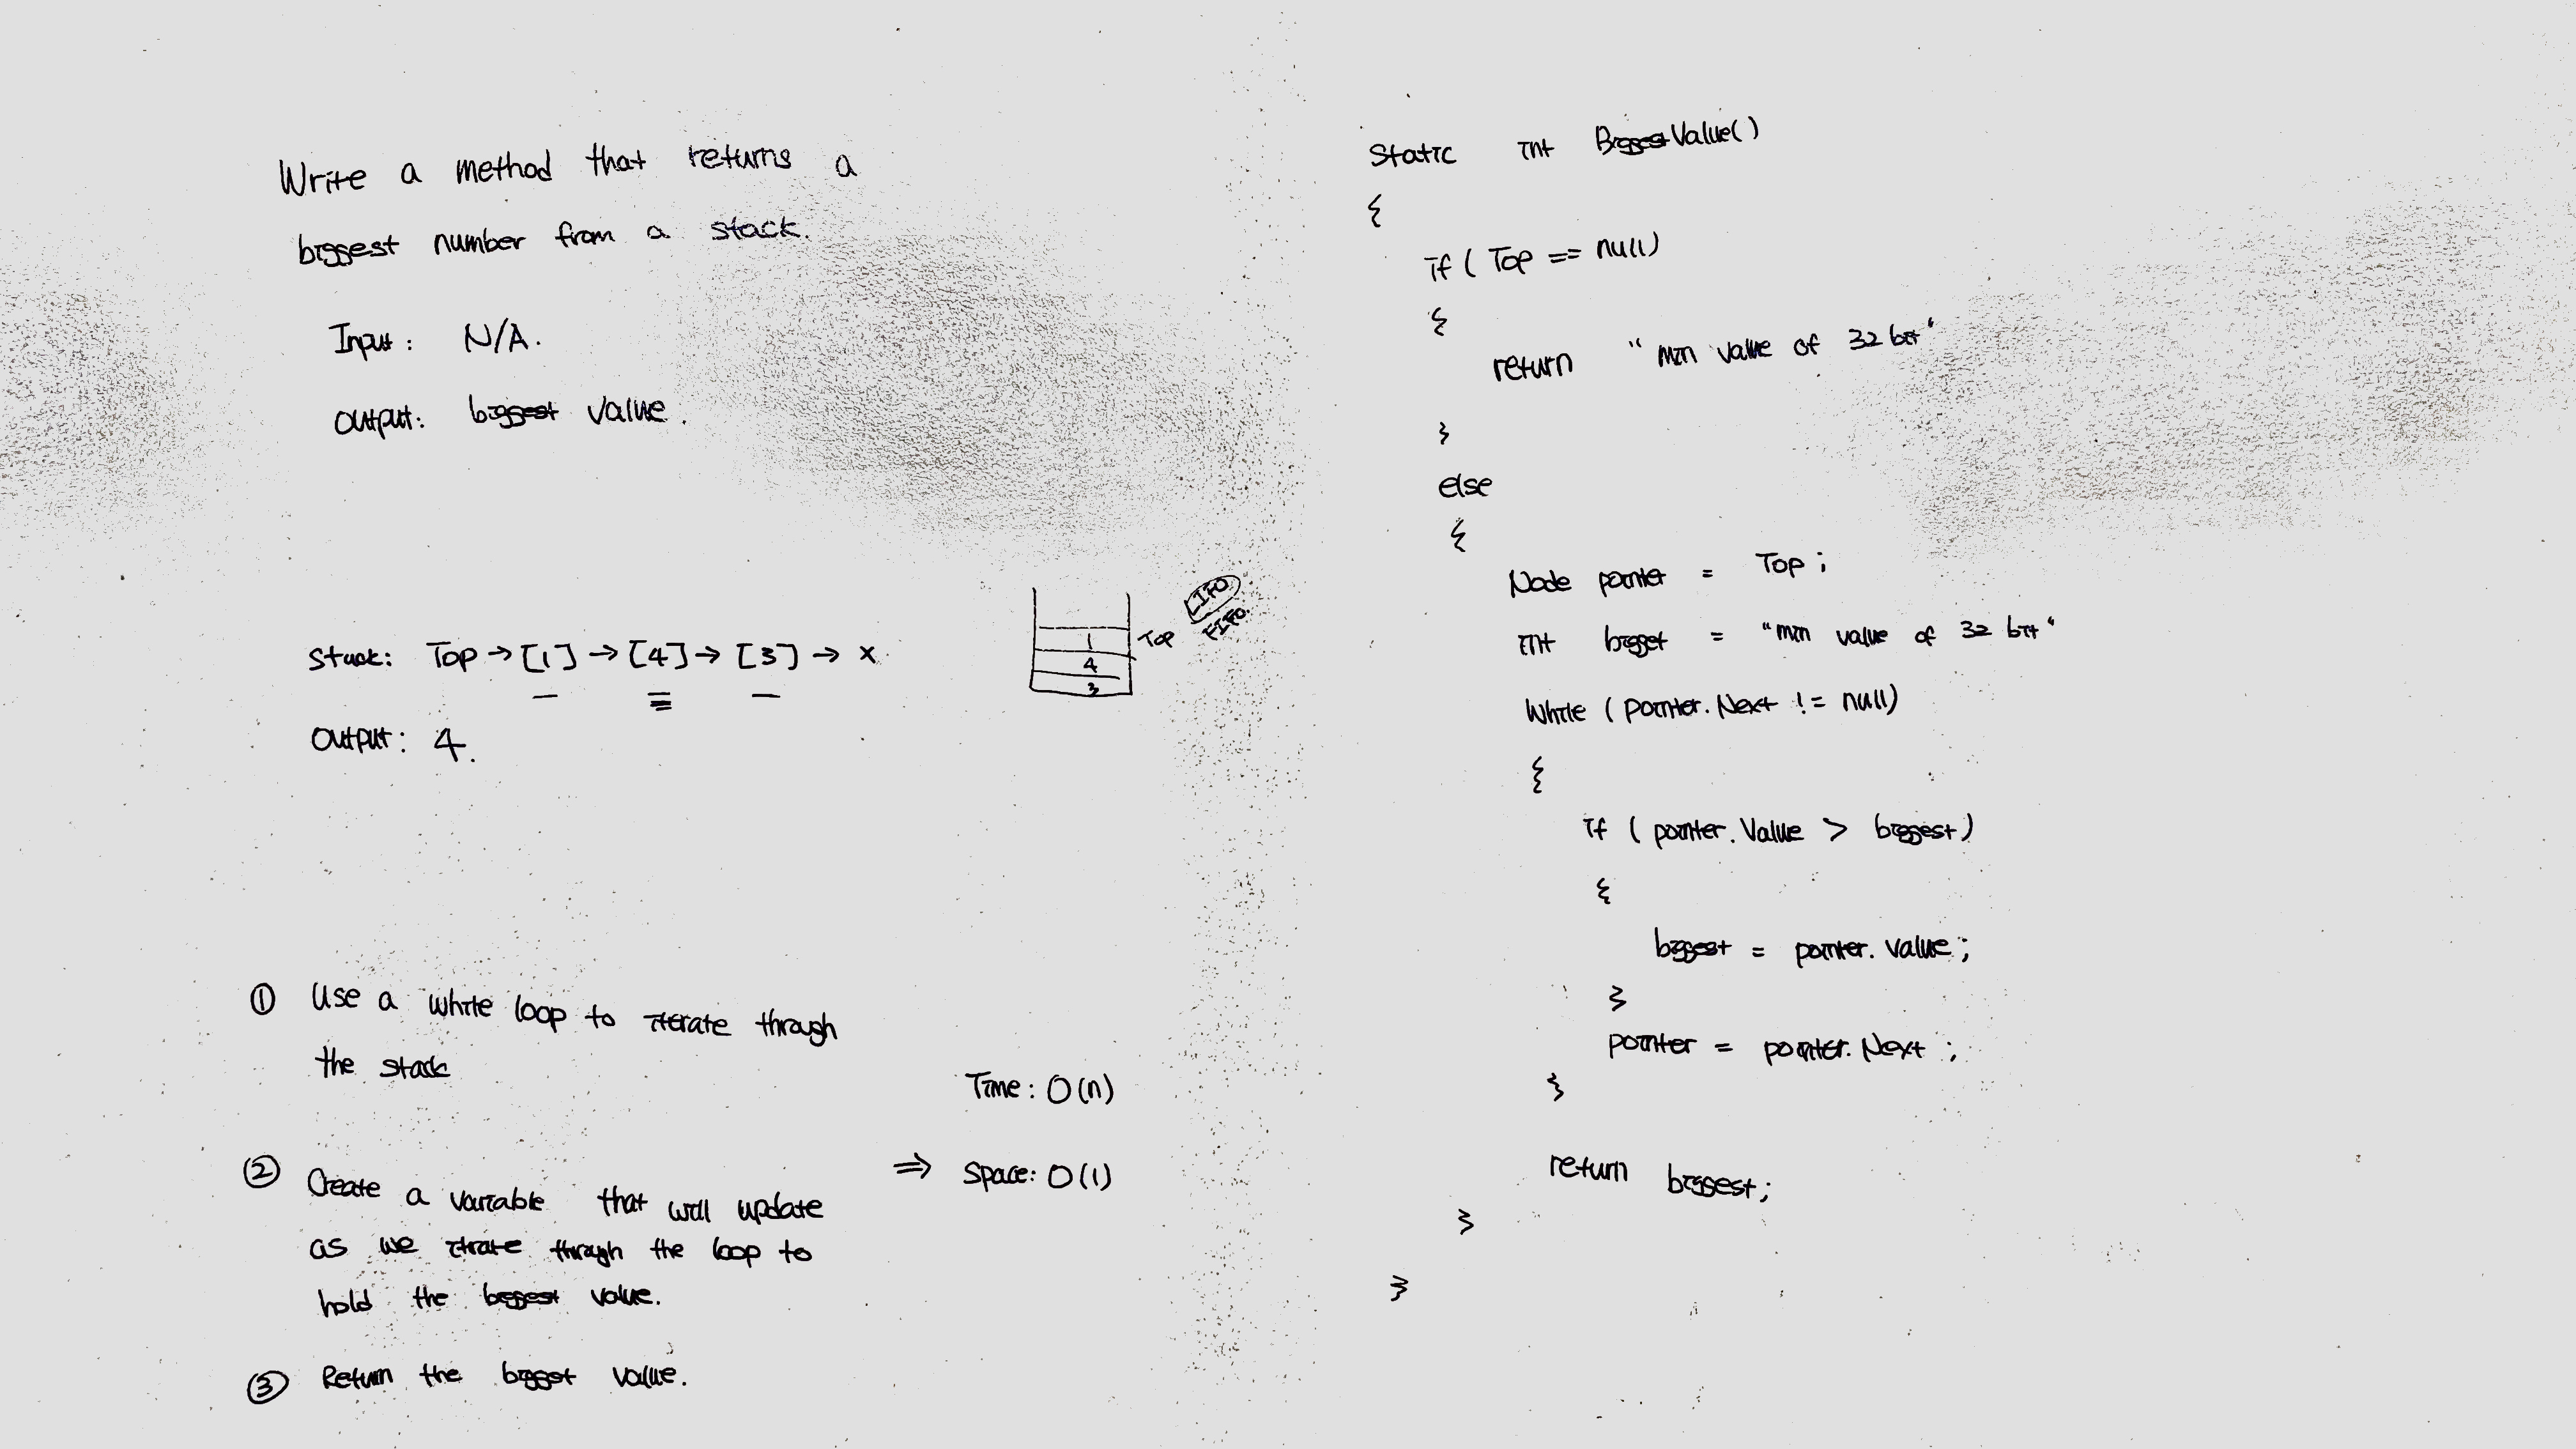 Write a method that returns a
biggest number from a stack.
Input: N/A.
Output: biggest value.
Stack: Top → [1] → [4] → [3] → x
Output: 4.
1
4
3
Top
LIFO
FIFO.
① Use a while loop to iterate through
the stack
② Create a variable that will update
as we itrate through the loop to
hold the biggest value.
③ Return the biggest value.
Time: O(n)
⇒ Space: O(1)
Static int BiggestValue()
{
if ( Top == null)
{
return "min value of 32 bit"
}
else
{
Node pointer = Top;
int bigget = "min value of 32 bit"
While (pointer.Next != null)
{
if (pointer.Value > biggest)
{
biggest = pointer.Value;
}
pointer = pointer.Next;
}
return biggest;
}
}